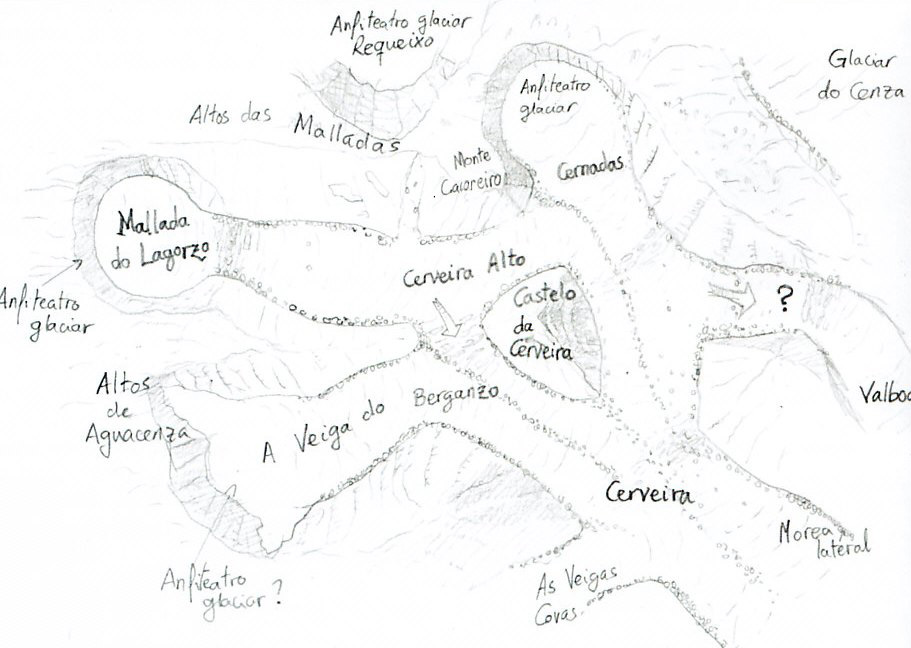 Anfiteatro glaciar
Requeixo
Glaciar
do Cenza
Anfiteatro
glaciar
Altos das
Malladas
Monte
Cernadas
Mallada
do Lagorzo
Cerveira Alto
Castelo
da
Cerveira
?
Anfiteatro
glaciar
Altos
de
Aguacenza
A Veiga do Berganzo
Cerveira
Morea
lateral
Anfiteatro
glaciar?
As Veigas
Covas